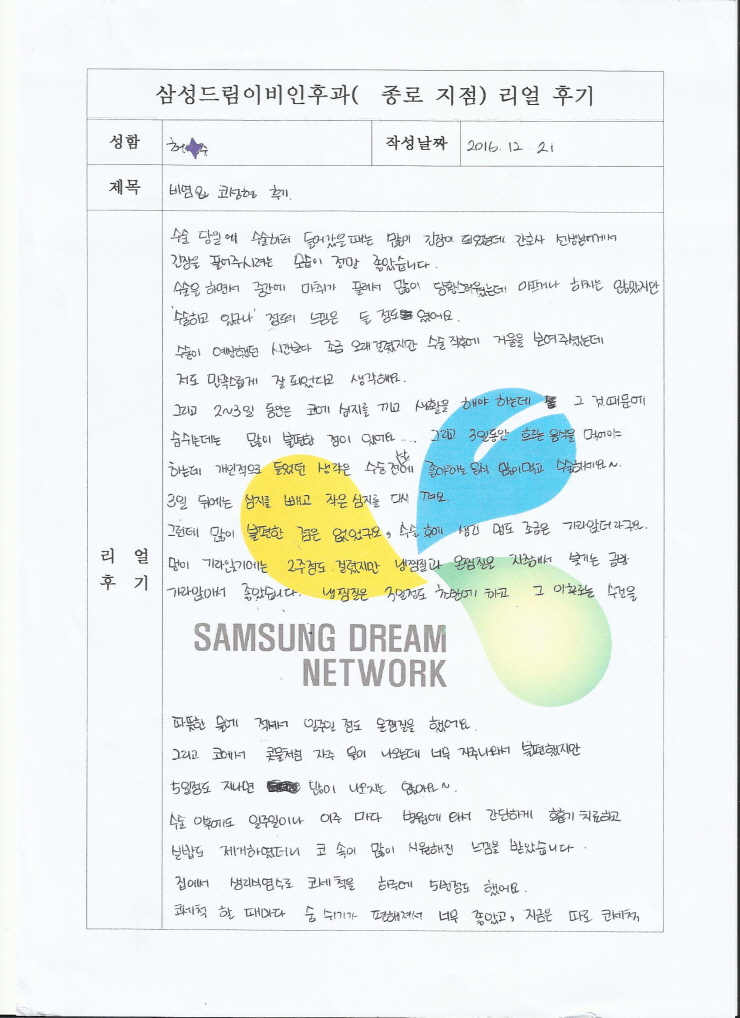 삼성드림이비인후과( 종로 지점) 리얼 후기
성함 허 작성날짜 2016. 12. 21
제목 비염 & 코성형 후기.
수술 당일에 수술하러 들어갔을때는 많이 긴장이 되었었는데 간호사 선생님께서
긴장을 풀어주시려는 모습이 정말 좋았습니다.
수술을 하면서 중간에 마취가 풀려서 많이 당황스러웠는데 아프거나 하지는 않았지만
'수술하고 있구나' 정도의 느낌은 들 정도였어요.
수술이 예상했던 시간보다 조금 오래걸렸지만 수술직후에 거울을 보여주셨는데
저도 만족스럽게 잘 되었다고 생각해요.
그리고 2~3일 동안은 코에 심지를 끼고 생활을 해야 하는데 그 것 때문에
숨쉬는데는 많이 불편한 점이 있어요... 그리고 3일동안 흐르는 음식을 먹어야
하는데 개인적으로 들었던 생각은 수술 전에 좋아하는 음식 많이먹고 수술하세요~
3일 뒤에는 심지를 빼고 작은 심지를 다시 껴요.
그런데 많이 불편한 점은 없었구요, 수술 후에 생긴 멍도 조금은 가라앉더라구요.
멍이 가라앉기에는 2주정도 걸렸지만 냉찜질과 온찜질은 지속해서 붓기는 금방
가라앉아서 좋았습니다. 냉찜질은 3일정도 하고 그 이후로는 수건을
SAMSUNG DREAM
NETWORK
리 얼
후 기
따뜻한 물에 적셔서 일주일 정도 온찜질을 했어요.
그리고 코에서 콧물처럼 자주 물이 나오는데 너무 자주나와서 불편했지만
5일정도 지나면 많이 나오지는 않아요~
수술 이후에도 일주일이나 이주 마다 병원에 와서 간단하게 호흡기 치료하고
실밥도 제거하였더니 코 속이 많이 시원해진 느낌을 받았습니다.
집에서 생리식염수로 코세척을 하루에 5번정도 했어요.
코세척 할 때마다 숨 쉬기가 편해져서 너무 좋았고, 지금은 따로 코세척